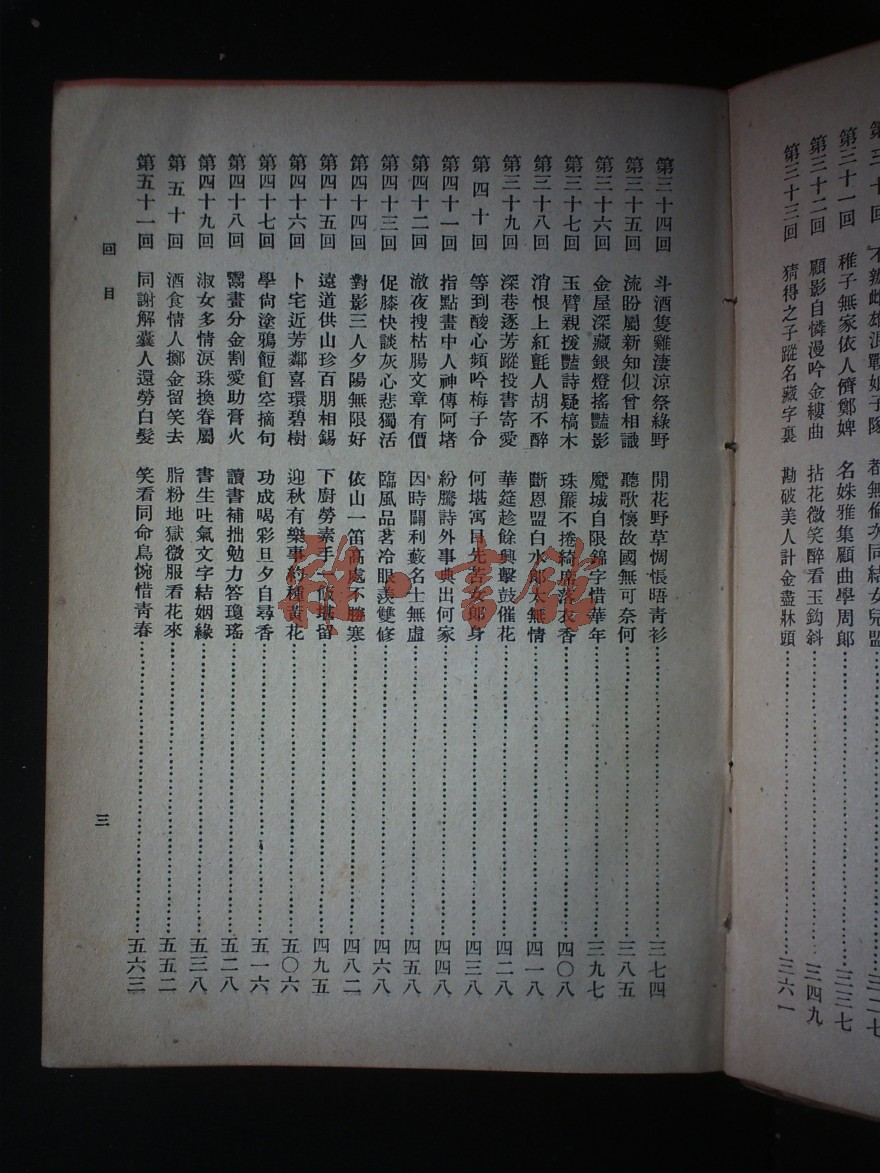 第三十一回 稚子無家依人儕鄭婢 名姝雅集顧曲學周郎 三三七
第三十二回 顧影自憐漫吟金縷曲 拈花微笑醉看玉鈎斜 三四九
第三十三回 猜得之子蹤名藏字裏 勘破美人計金盡牀頭 三六一
第三十四回 斗酒隻雞淒涼祭綠野 閒花野草惆悵晤青衫 三七四
第三十五回 流盼屬新知似曾相識 聽歌懷故國無可奈何 三八五
第三十六回 金屋深藏銀燈搖豔影 魔城自限錦字惜華年 三九七
第三十七回 玉臂親援豔詩疑槁木 珠簾不捲綺席落衣香 四〇八
第三十八回 消恨上紅氈人胡不醉 斷恩盟白水郎太無情 四一八
第三十九回 深巷逐芳蹤投書寄愛 華筵趁餘興擊鼓催花 四二八
第四十回 等到酸心頻吟梅子令 何堪寓目先苦女郎身 四三八
第四十一回 指點畫中人神傳阿堵 紛騰詩外事典出何家 四四八
第四十二回 澈夜搜枯腸文章有價 因時闢利藪名士無虛 四五八
第四十三回 促膝快談灰心悲獨活 臨風品茗冷眼羨雙修 四六八
第四十四回 對影三人夕陽無限好 依山一笛高處不勝寒 四八二
第四十五回 遠道供山珍百朋相錫 下廚勞素手一飯堪留 四九五
第四十六回 卜宅近芳鄰喜環碧樹 迎秋有樂事約種黃花 五〇六
第四十七回 學尙塗鴉餖飣空摘句 功成喝彩旦夕自尋香 五一六
第四十八回 鬻畫分金割愛助膏火 讀書補拙勉力答瓊瑤 五二八
第四十九回 淑女多情淚珠換眷屬 書生吐氣文字結姻緣 五三八
第五十回 酒食情人擲金留笑去 脂粉地獄微服看花來 五五二
第五十一回 同謝解囊人還勞白髮 笑看同命鳥惋惜青春 五六三
回目
三